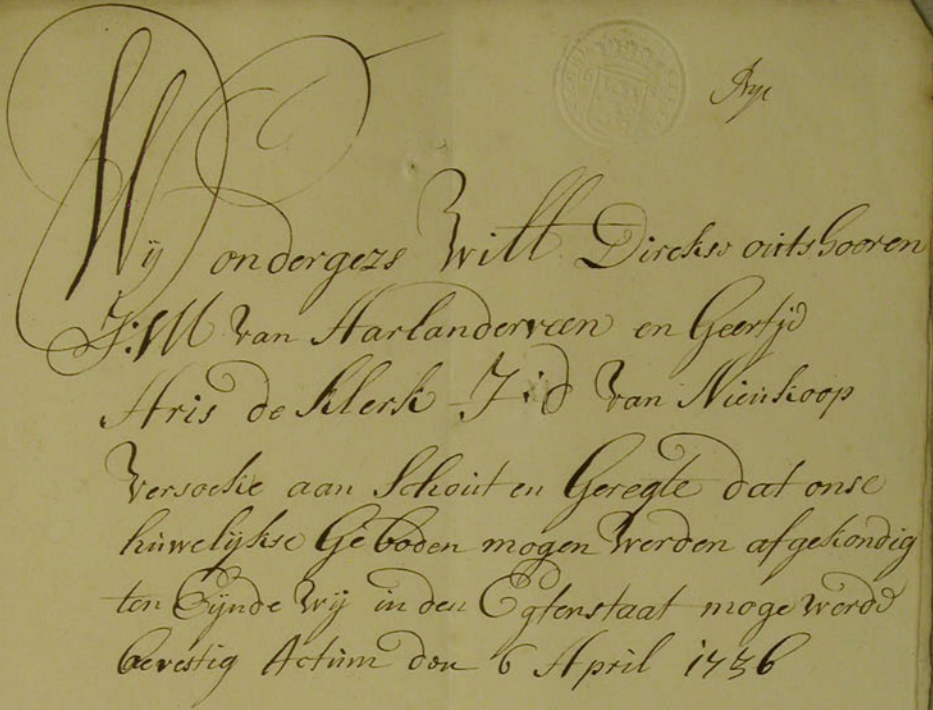 Wij ondergezs Will Dirckss outshooren
J:M van Aarlanderveen en Geertje
Aris de Klerk J:d van Nieukoop
Versoeke aan Schout en Geregte dat onse
huwelijkse Geboden mogen werden afgekondig
ten Eijnde wij in den Egtenstaat moge werde
bevestig Actum den 6 April 1736